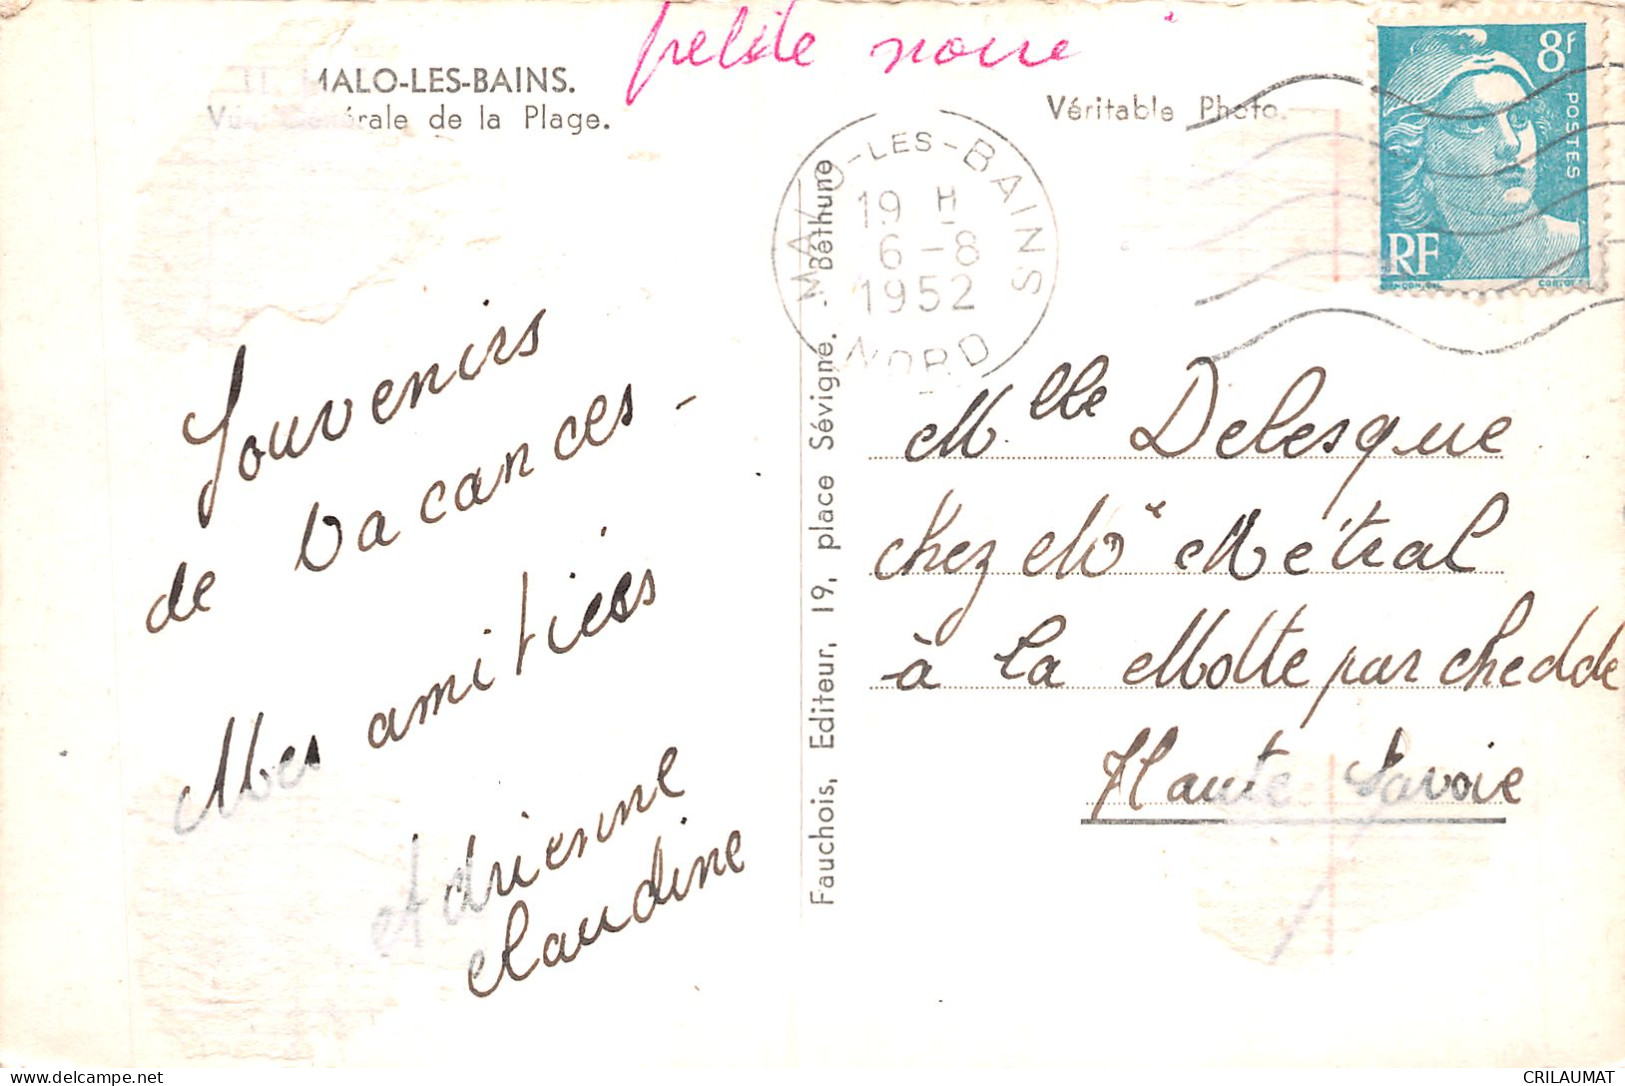 petite noire
11. MALO-LES-BAINS.
Vue Générale de la Plage.
Véritable Photo.
MALO-LES-BAINS
19 H
6-8
1952
NORD
8F
POSTES
RF
Souvenirs
de Vacances -
Mes amitiées
Adrienne
Claudine
Fauchois, Editeur, 19, place Sévigné. - Béthune
Mlle Delesque
chez Mr Métral
à La Motte par Chedde
Haute Savoie
CRILAUMAT